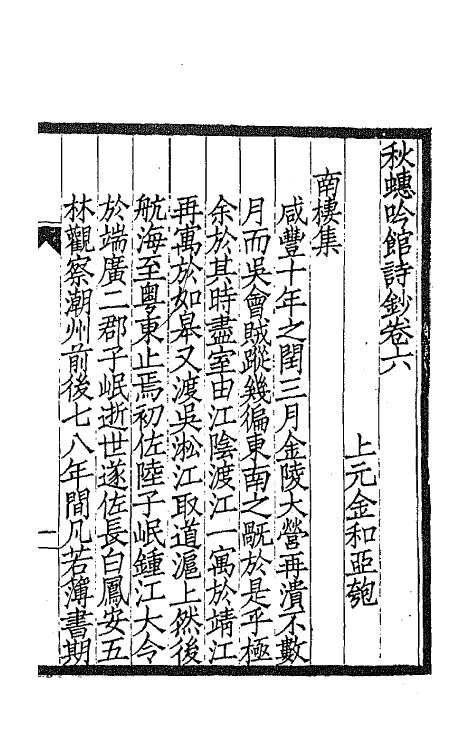 秋蟪吟館詩鈔卷六
上元金和亞匏
南棲集
咸豐十年之閏三月金陵大營再潰不數
月而吳會賊蹤幾徧東南之翫於是乎極
余於其時盡室由江陰渡江一寓於靖江
再寓於如皋又渡吳淞江取道滬上然後
航海至粵東止焉初佐陸子岷鍾江大令
於端廣二郡子岷逝世遂佐長白鳳安五
林觀察潮州前後七八年間凡若簿書期
一